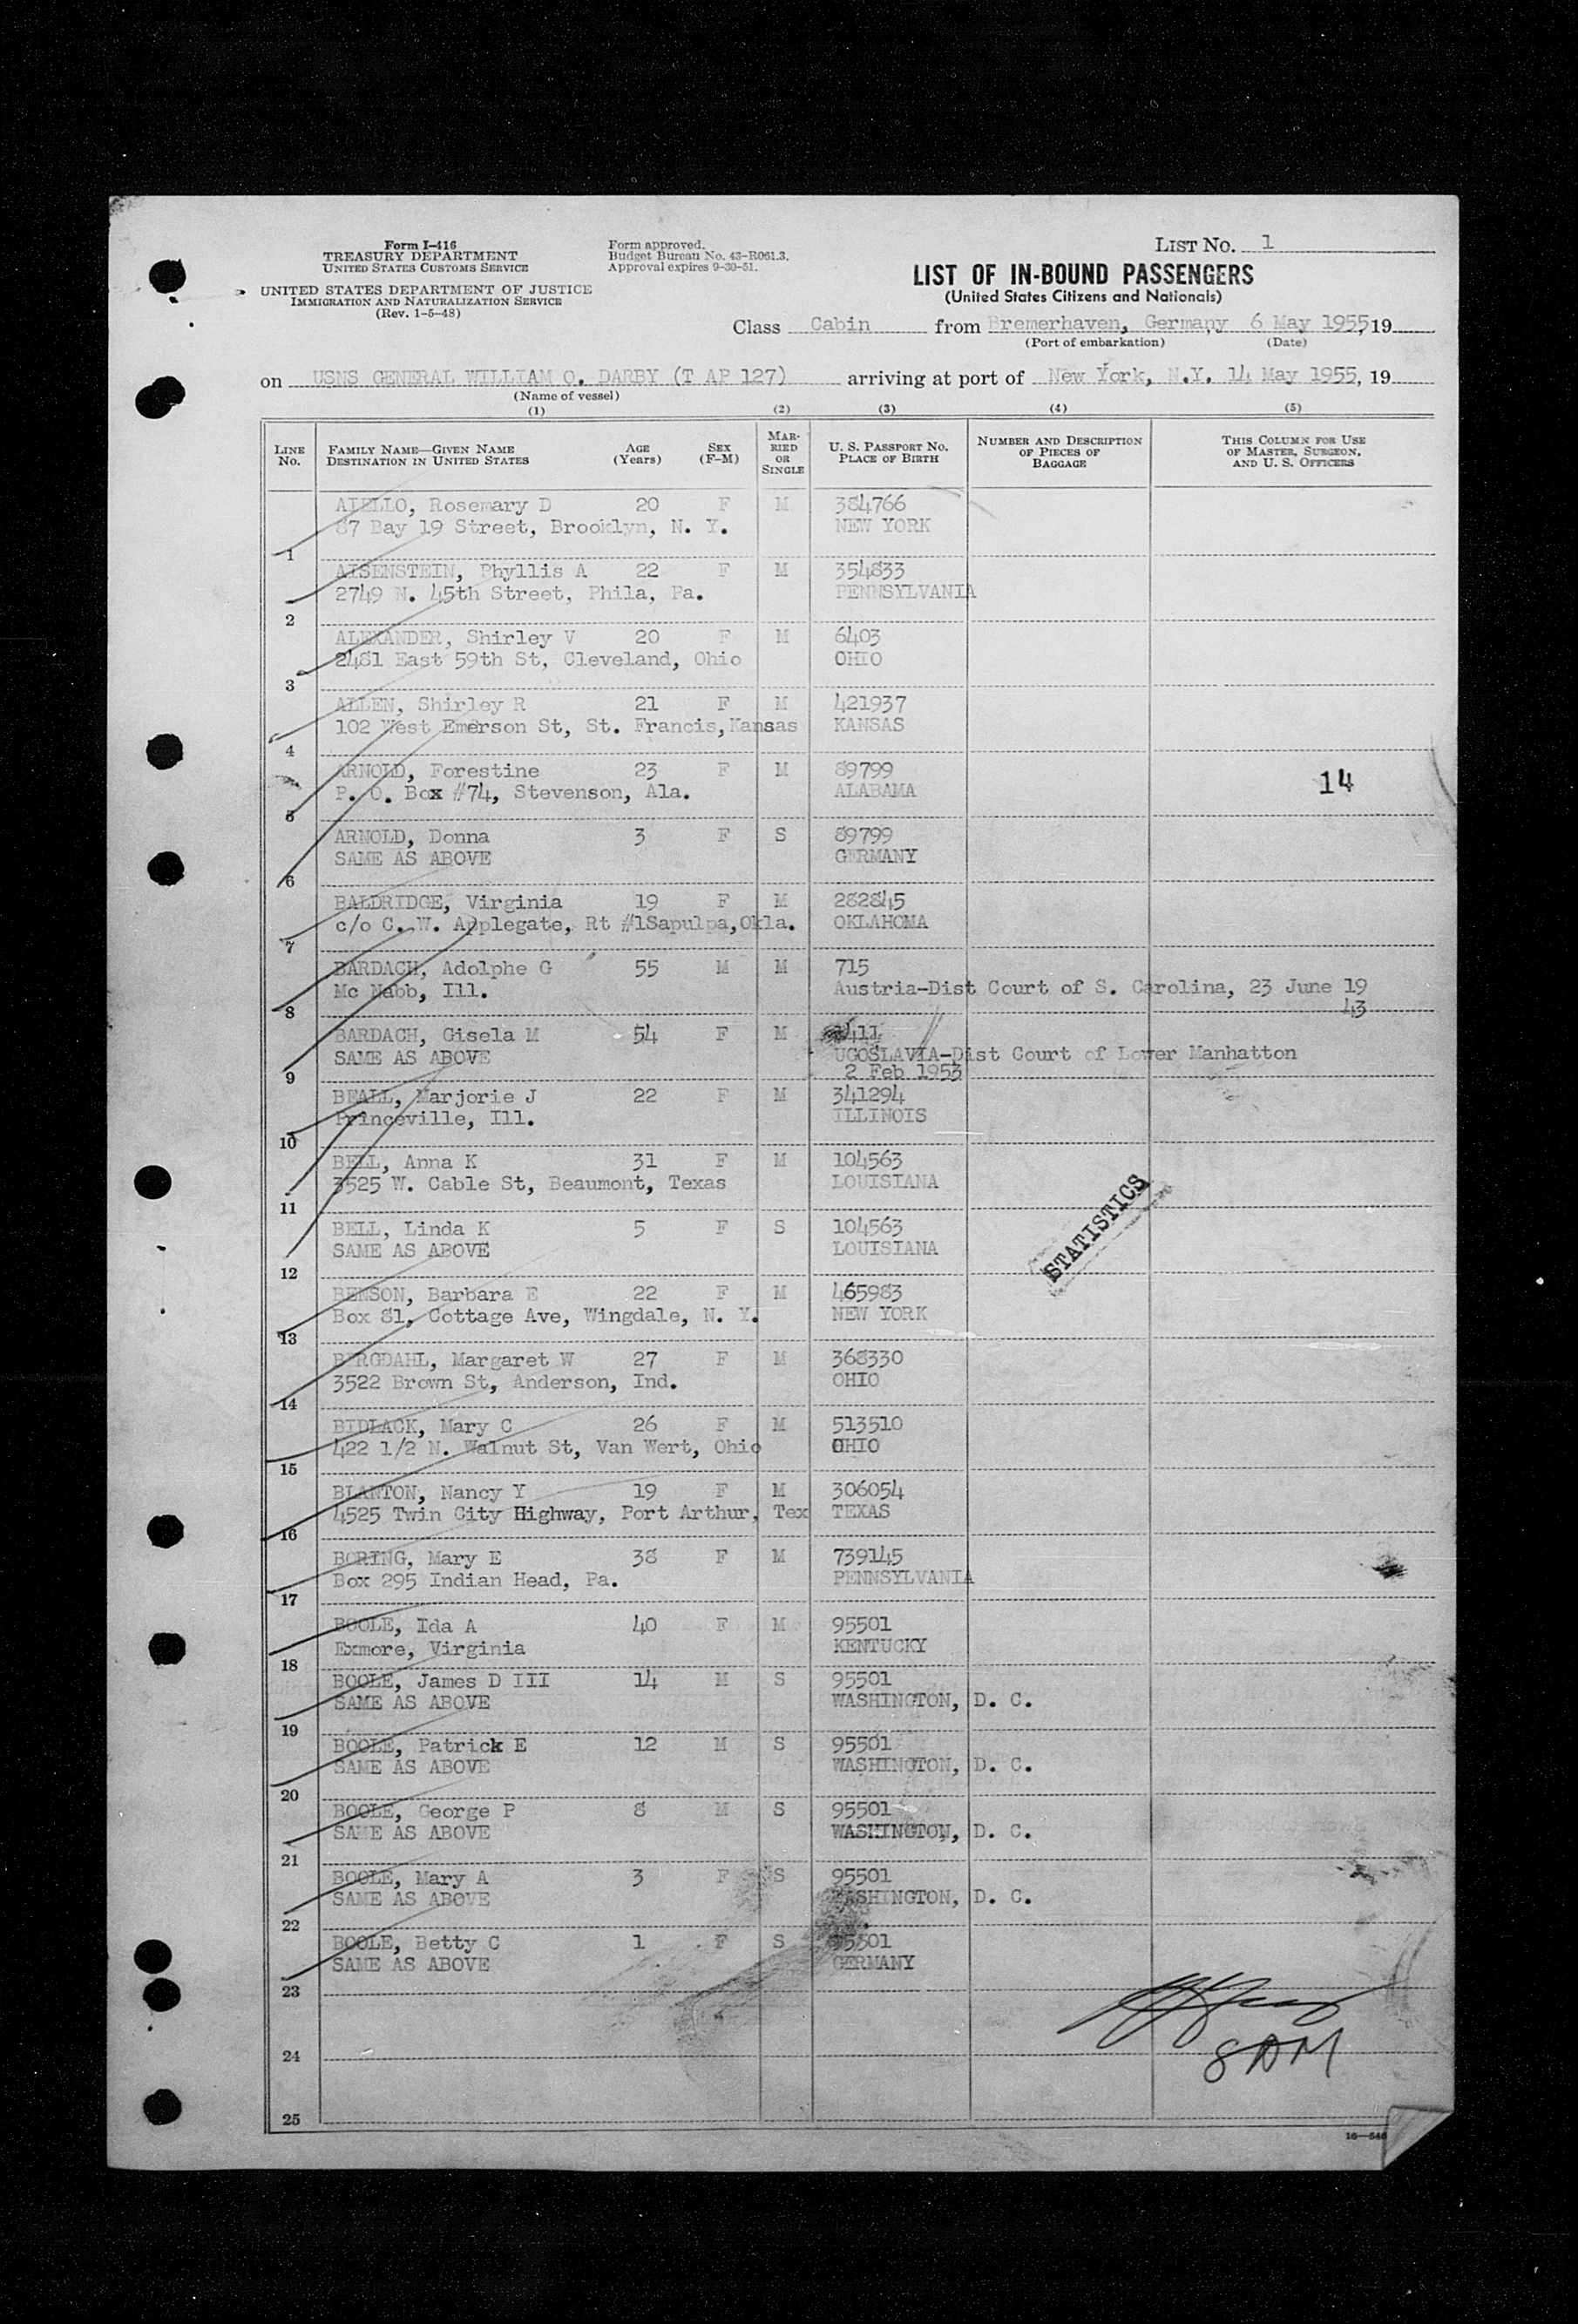 Form I-416
TREASURY DEPARTMENT
UNITED STATES CUSTOMS SERVICE
UNITED STATES DEPARTMENT OF JUSTICE
IMMIGRATION AND NATURALIZATION SERVICE
(Rev. 1-5-48)
Form approved.
Budget Bureau No. 43-R061.3.
Approval expires 9-30-51.
LIST NO. 1
LIST OF IN-BOUND PASSENGERS
(United States Citizens and Nationals)
Class Cabin from Bremerhaven, Germany 6 May 1955, 19
(Port of embarkation) (Date)
on USNS GENERAL WILLIAM O. DARBY (T AP 127) arriving at port of New York, N.Y. 14 May 1955, 19
(Name of vessel)
(1) (2) (3) (4) (5)
LINE No. FAMILY NAME—GIVEN NAME DESTINATION IN UNITED STATES AGE (Years) SEX (F-M) MARRIED OR SINGLE U. S. PASSPORT NO. PLACE OF BIRTH NUMBER AND DESCRIPTION OF PIECES OF BAGGAGE THIS COLUMN FOR USE OF MASTER, SURGEON, AND U. S. OFFICERS
AIELLO, Rosemary D 20 F M 384766
87 Bay 19 Street, Brooklyn, N. Y. NEW YORK
1
AISENSTEIN, Phyllis A 22 F M 354833
2749 N. 45th Street, Phila, Pa. PENNSYLVANIA
2
ALEXANDER, Shirley V 20 F M 6403
2481 East 59th St, Cleveland, Ohio OHIO
3
ALLEN, Shirley R 21 F M 421937
102 West Emerson St, St. Francis, Kansas KANSAS
4
ARNOLD, Forestine 23 F M 89799
P. O. Box #74, Stevenson, Ala. ALABAMA 14
5
ARNOLD, Donna 3 F S 89799
SAME AS ABOVE GERMANY
6
BALDRIDGE, Virginia 19 F M 282845
c/o C. W. Applegate, Rt #1Sapulpa,Okla. OKLAHOMA
7
BARDACH, Adolphe G 55 M M 715
Mc Nabb, Ill. Austria-Dist Court of S. Carolina, 23 June 19
43
8
BARDACH, Gisela M 54 F M
SAME AS ABOVE UGOSLAVIA-Dist Court of Lower Manhatton
2 Feb 1953
9
BEALL, Marjorie J 22 F M 341294
Princeville, Ill. ILLINOIS
10
BELL, Anna K 31 F M 104563
3525 W. Cable St, Beaumont, Texas LOUISIANA
11
BELL, Linda K 5 F S 104563
SAME AS ABOVE LOUISIANA
STATISTICS
12
BENSON, Barbara E 22 F M 465983
Box 81, Cottage Ave, Wingdale, N. Y. NEW YORK
13
BERGDAHL, Margaret W 27 F M 368330
3522 Brown St, Anderson, Ind. OHIO
14
BIDLACK, Mary C 26 F M 513510
422 1/2 N. Walnut St, Van Wert, Ohio OHIO
15
BLANTON, Nancy Y 19 F M 306054
4525 Twin City Highway, Port Arthur, Tex TEXAS
16
BORING, Mary E 38 F M 739145
Box 295 Indian Head, Pa. PENNSYLVANIA
17
BOOLE, Ida A 40 F M 95501
Exmore, Virginia KENTUCKY
18
BOOLE, James D III 14 M S 95501
SAME AS ABOVE WASHINGTON, D. C.
19
BOOLE, Patrick E 12 M S 95501
SAME AS ABOVE WASHINGTON, D. C.
20
BOOLE, George P 8 M S 95501
SAME AS ABOVE WASHINGTON, D. C.
21
BOOLE, Mary A 3 F S 95501
SAME AS ABOVE WASHINGTON, D. C.
22
BOOLE, Betty C 1 F S 95501
SAME AS ABOVE GERMANY
23
24
25